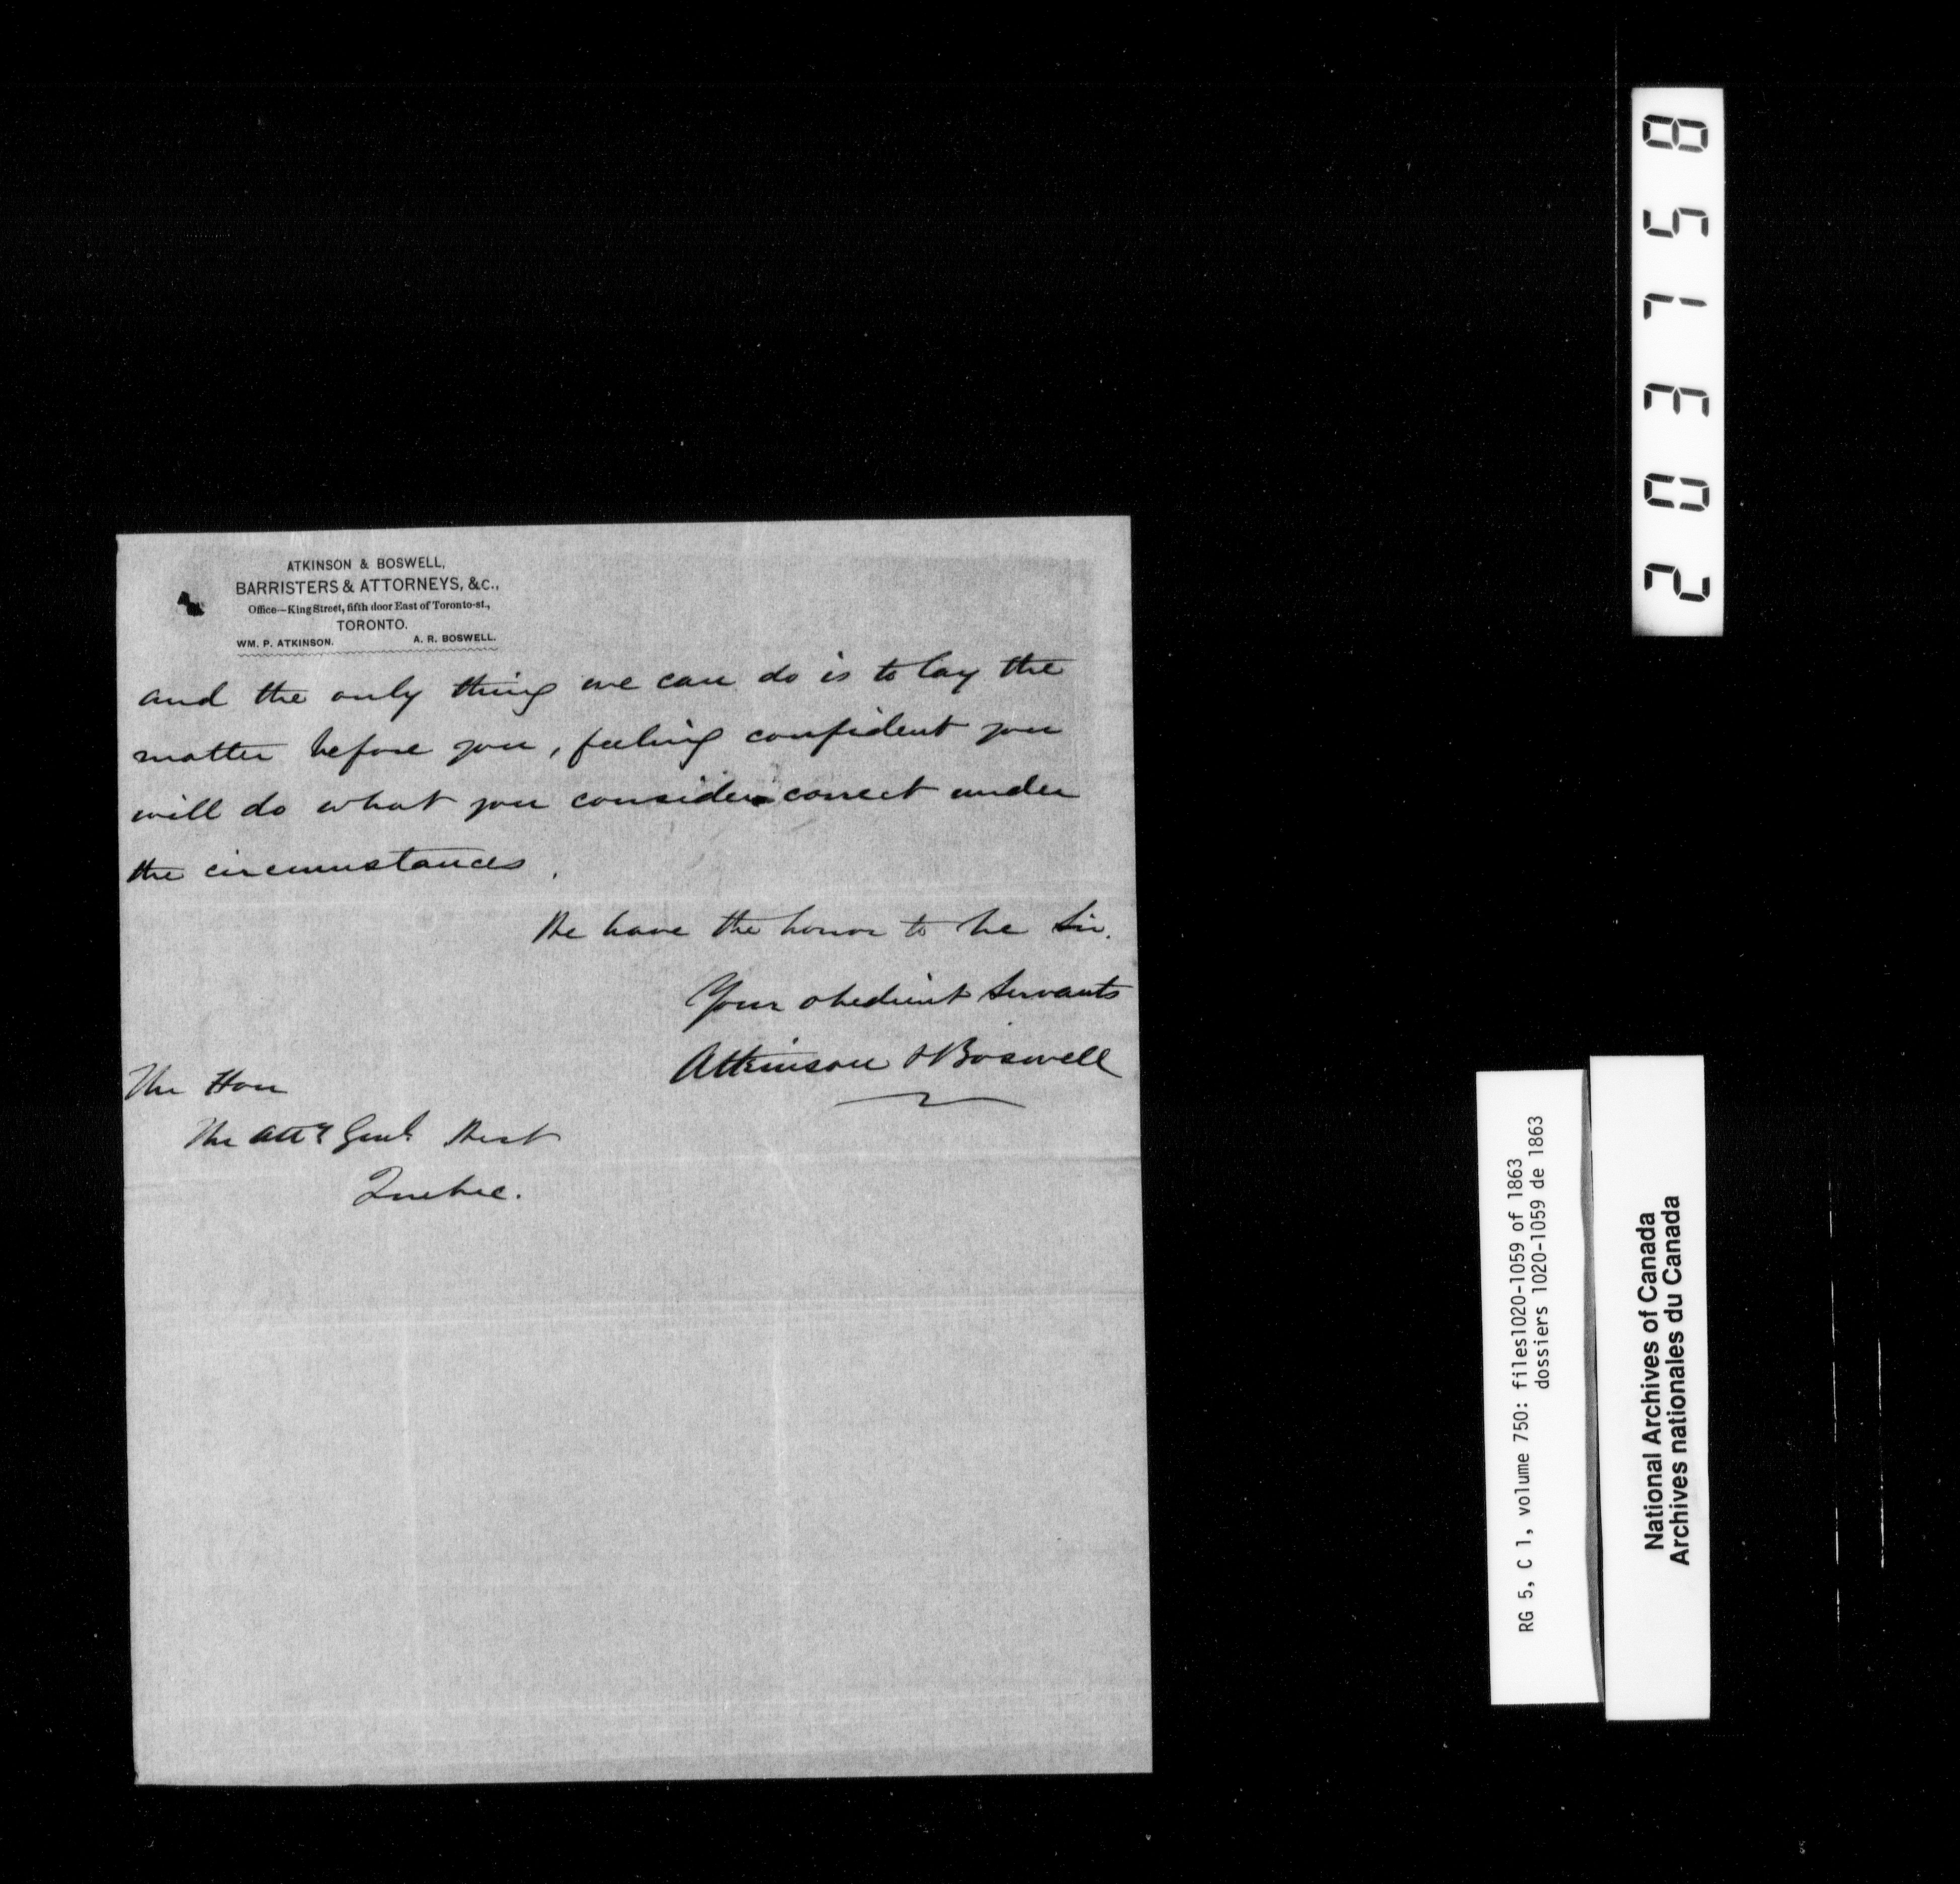 ATKINSON & BOSWELL,
BARRISTERS & ATTORNEYS, &c.,
Office—King Street, fifth door East of Toronto-st.,
TORONTO.
WM. P. ATKINSON. A. R. BOSWELL.
and the only thing we can do is to lay the
matter before you, feeling confident you
will do what you consider correct under
the circumstances.
We have the honor to be Sir.
Your obedient Servants
Atkinson & Boswell
The Hon
The Atty Genl. West
Quebec.
203758
RG 5, C 1, volume 750: files1020-1059 of 1863
dossiers 1020-1059 de 1863
National Archives of Canada
Archives nationales du Canada